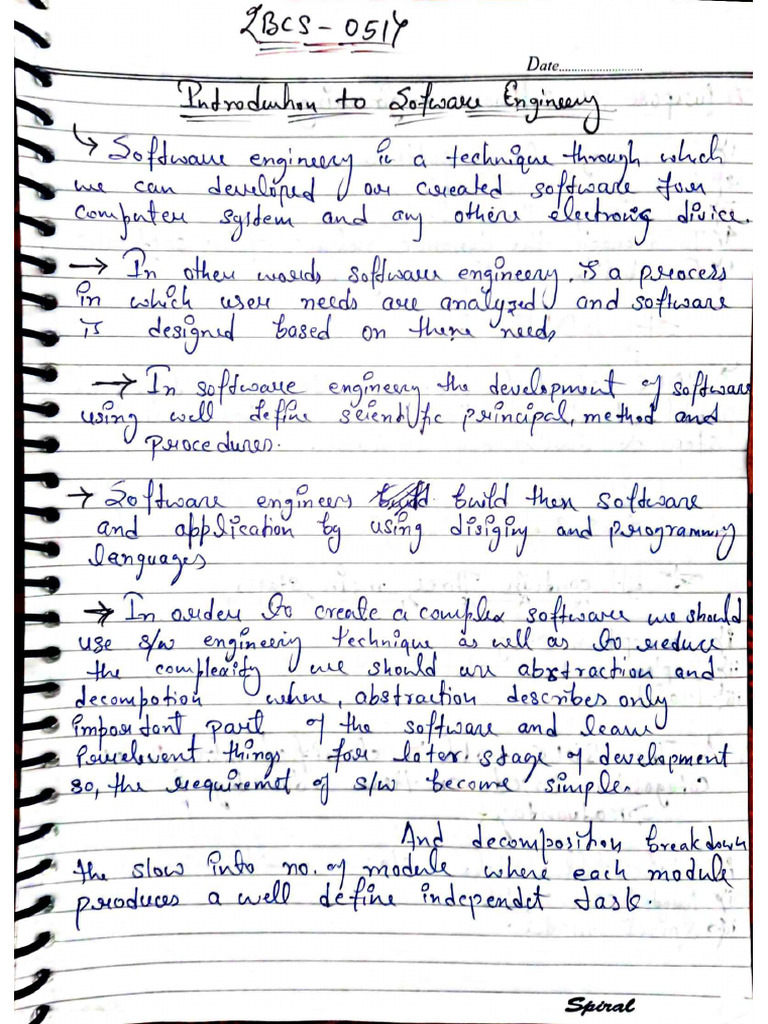 2BCS-0517
Date............................
Introduction to Software Engineery
↳ Software engineery is a technique through which
we can developed or created software for
computer system and any othere electronic divice.
→ In other words software engineery, is a process
in which user needs are analyzed and software
is designed based on there needs
→ In software engineery the development of software
using well define scientific principal, method and
procedures.
→ Software engineers build then software
and application by using disiginy and programmiy
languages
→ In order to create a complex software we should
use s/w engineeriy technique as well as to reduce
the complexity we should use abstraction and
decompotion where, abstraction describes only
important part of the software and leave
irrelevent things for later stage of development
so, the requiremet of s/w become simple.
And decomposition breakdown
the slow into no. of module where each module
produces a well define independet task.
Spiral